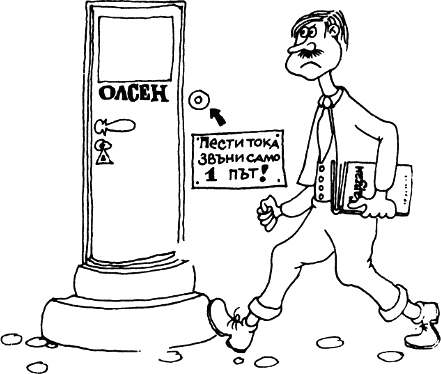 ОЛСЕН
Пести тока
звъни само
1 път!
Тарзан